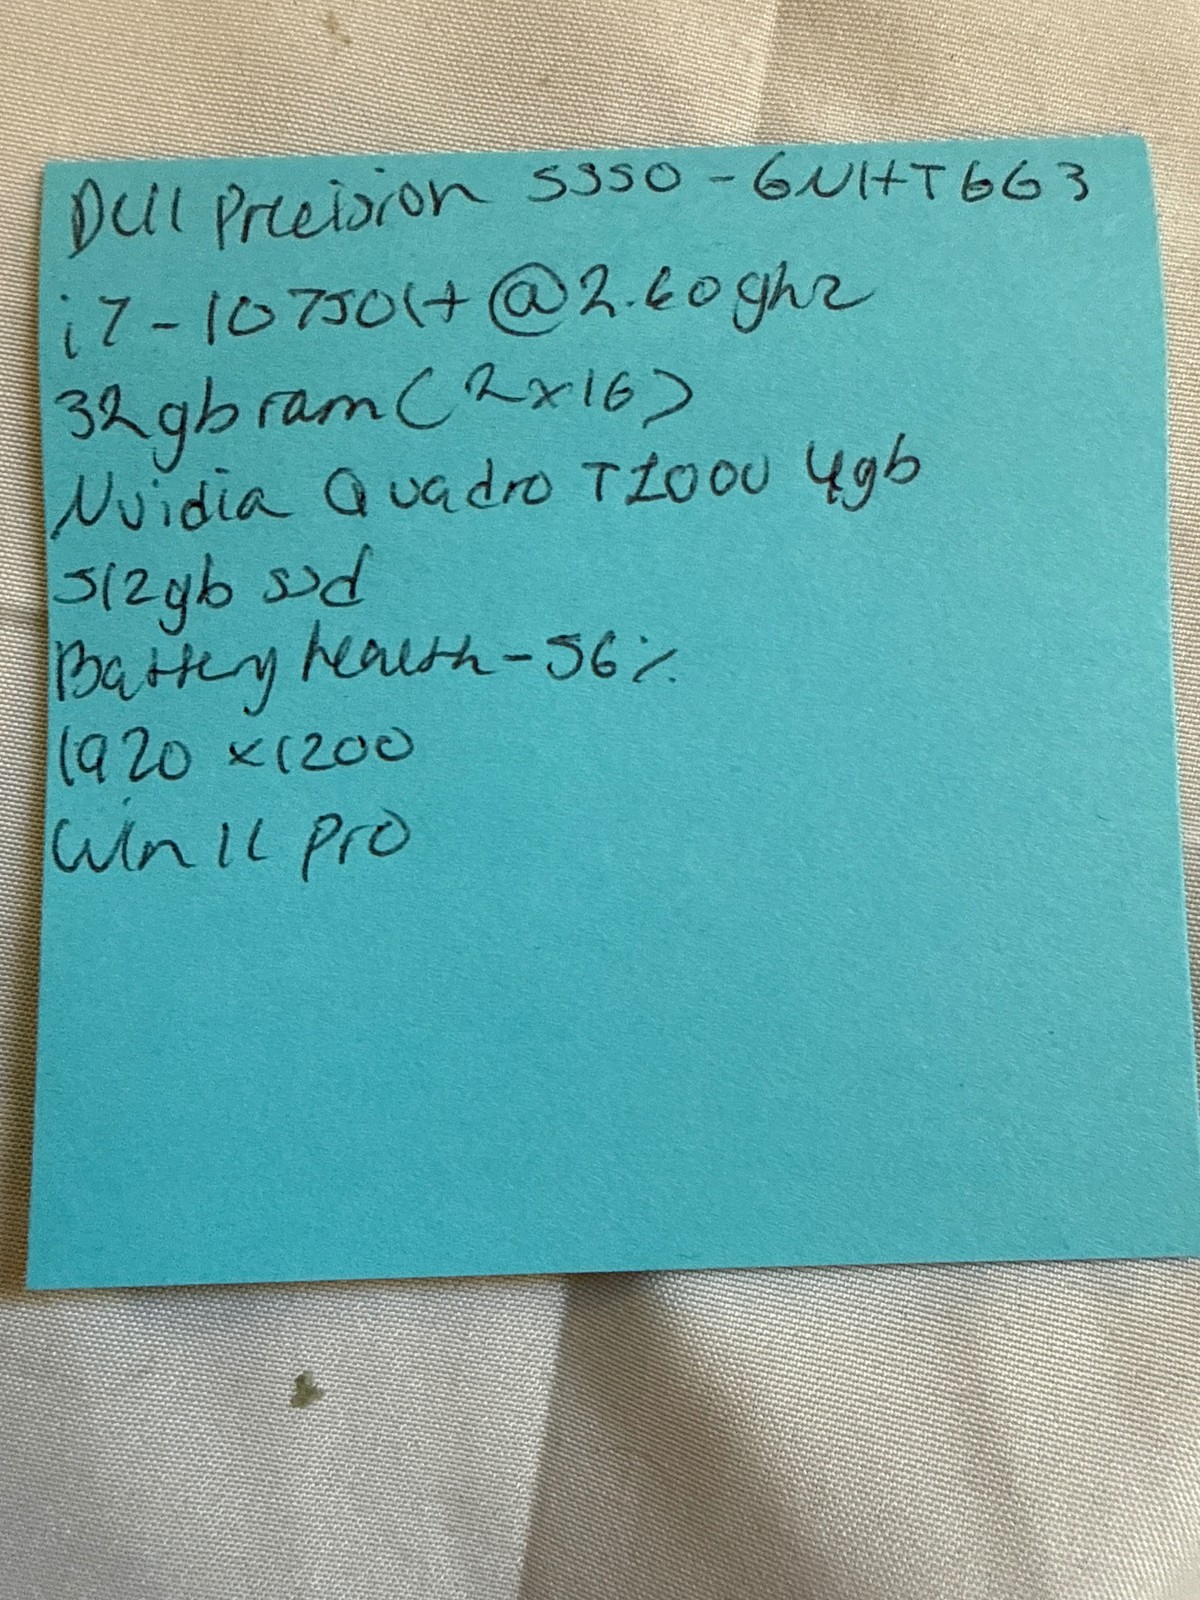 Dell Precision 5550 - 6NHT6G3
i7-10750H @2.60ghz
32gb ram (2x16)
Nvidia Quadro T1000 4gb
512gb ssd
Battery health - 56%
1920 x1200
Win 11 Pro